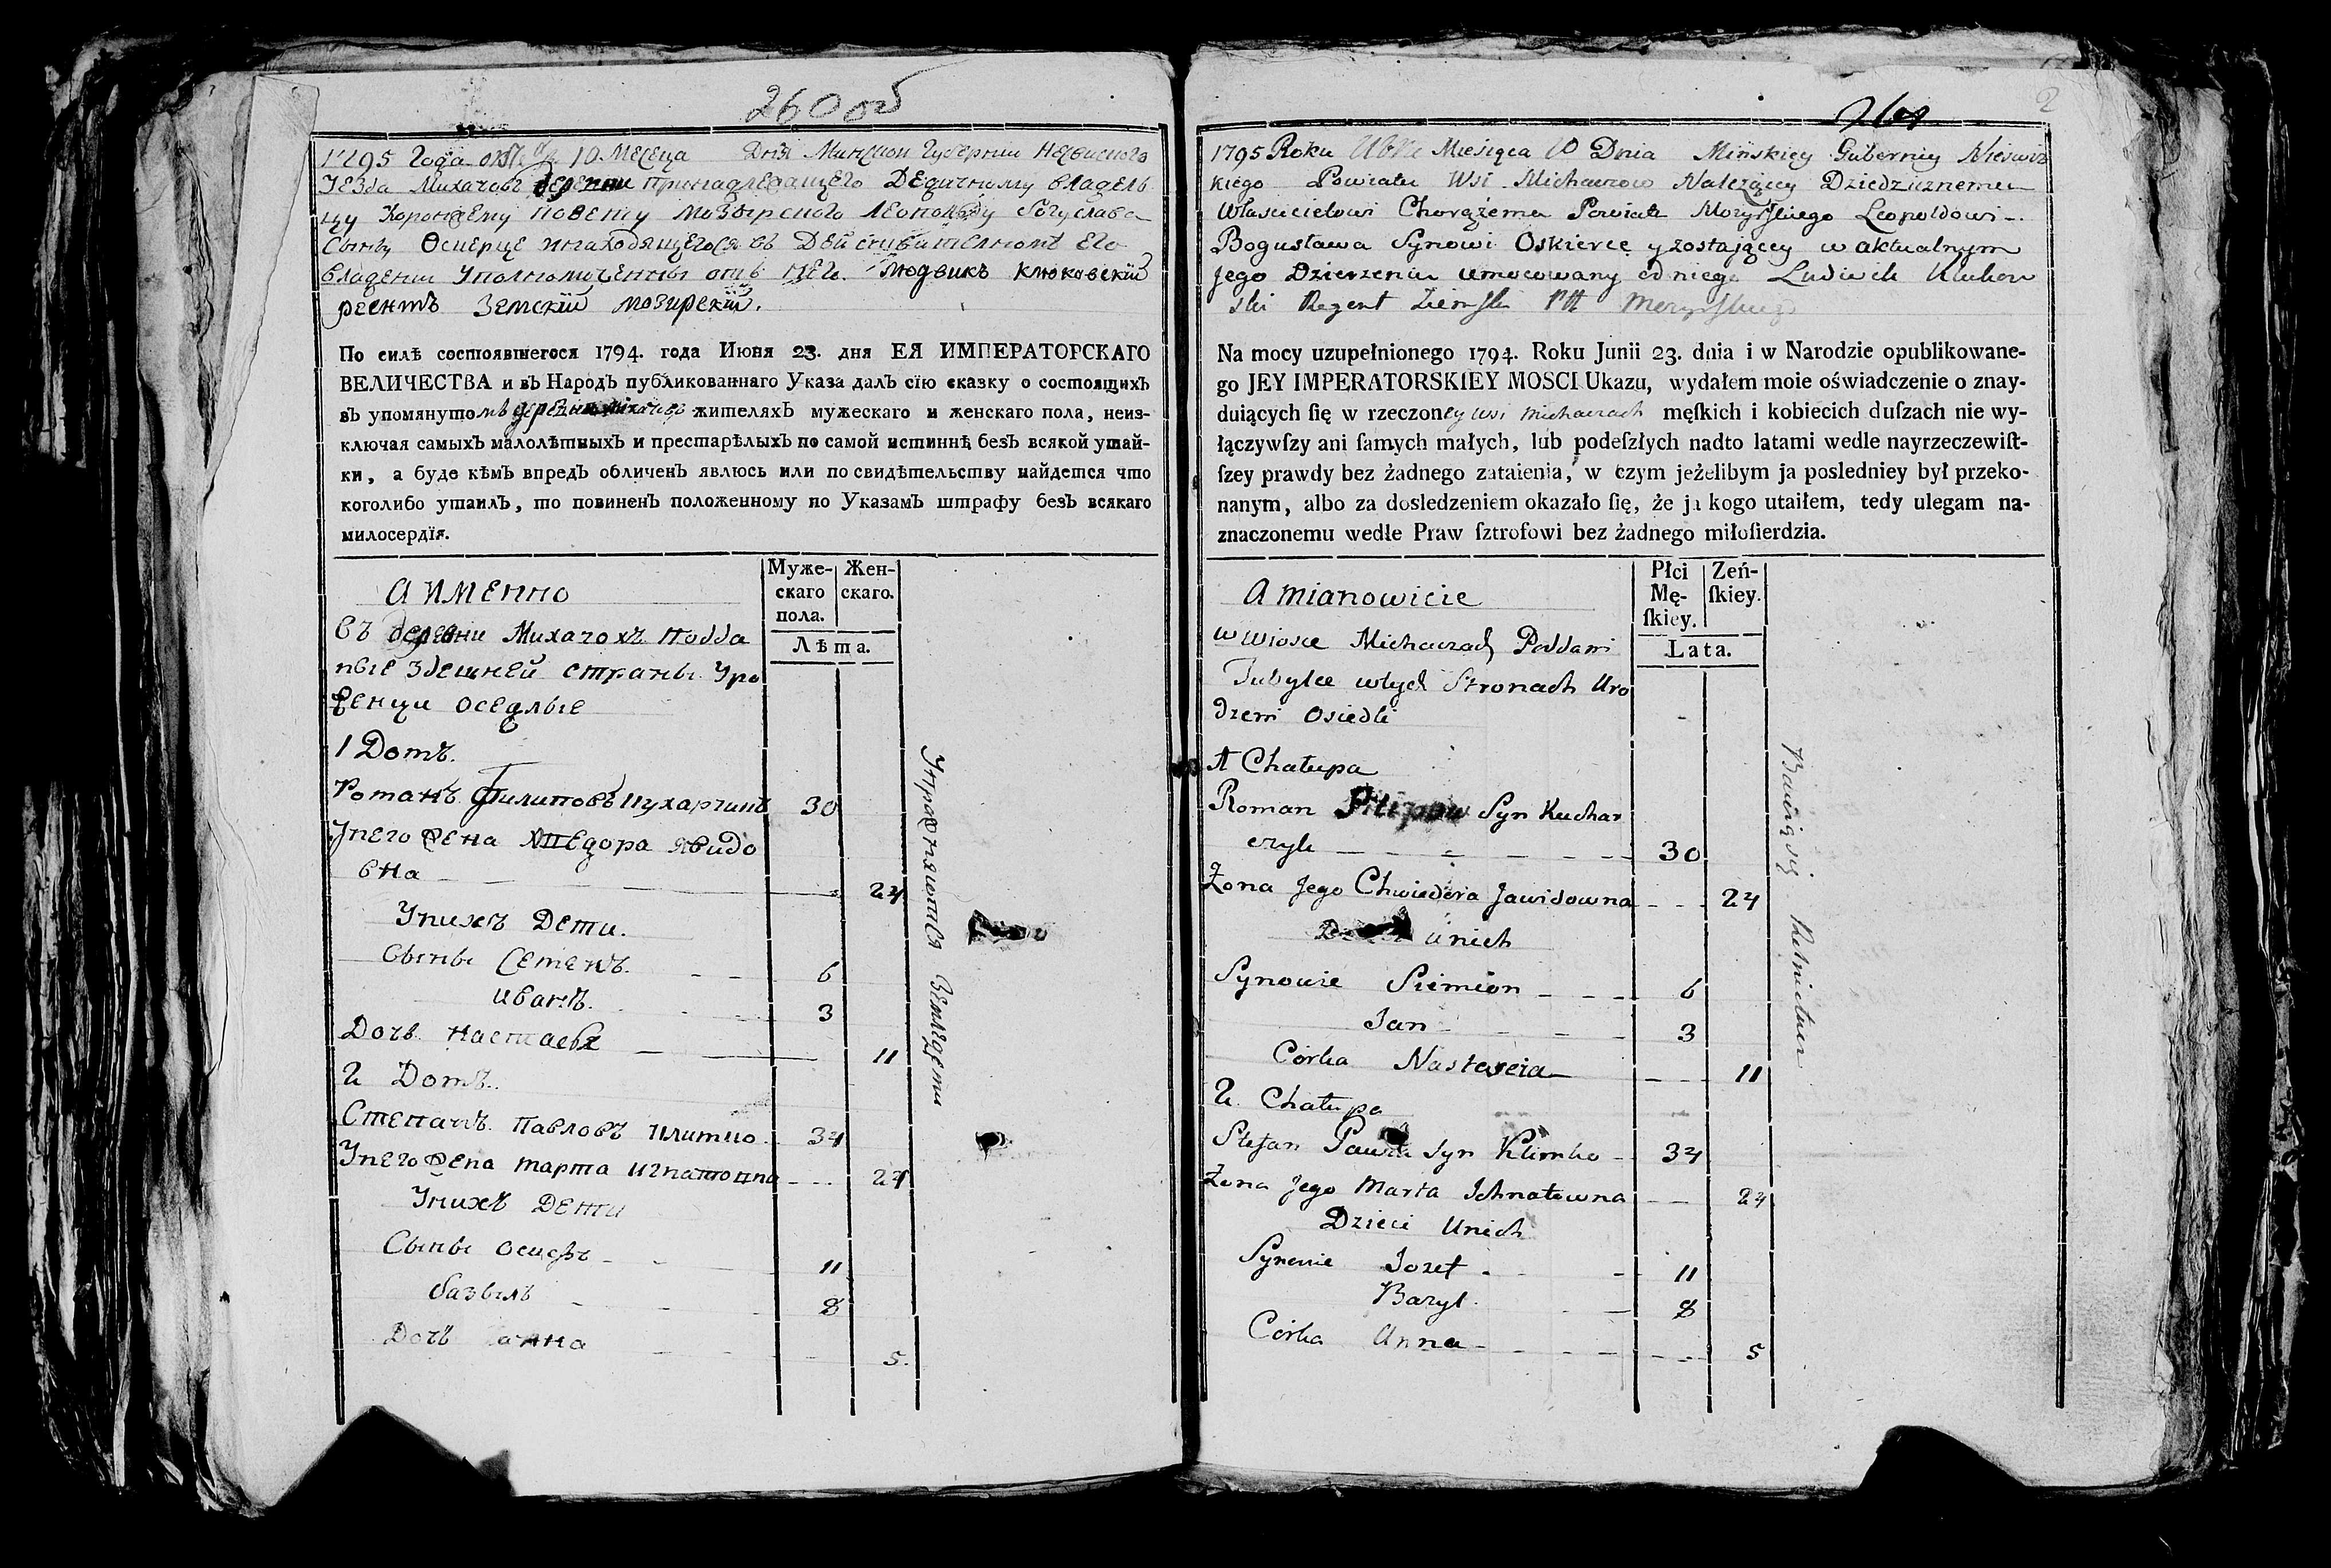 260 об
1795 Года 10 Месеца Дня Минской Губернии Несвиского
Уезда Михачовъ деревни принадлежащего Дедичному владель
цу Хоронжему повету Мозырского Леопольду Богуслава
Сыну Оскерце инаходящегося въ Действителномъ Его
владении Уполномоченный отъ Него Людвикъ Клюковскій
реентъ Земскій мозирскій.
По силѣ состоявшегося 1794. года Июня 23. дня ЕЯ ИМПЕРАТОРСКАГО
ВЕЛИЧЕСТВА и въ Народъ публикованнаго Указа далъ сїю сказку о состоящихъ
въ упомянутомъ деревни жителяхъ мужескаго и женскаго пола, неиз-
ключая самыхъ малолѣтныхъ и престарѣлыхъ по самой истиннѣ безъ всякой утай-
ки, а буде кѣмъ впредъ обличенъ явлюсь или по свидѣтельству найдется что
коголибо утаилъ, то повиненъ положенному по Указамъ штрафу безъ всякаго
милосердїя.
Муже-
скаго
пола.
Жен-
скаго.
Лѣта.
А ИМЕННО
Въ деревни Михачохъ подда
ные здешней страны Уро
женци оседлые
1 Домъ.
Романъ Филиповъ Кухарчикъ 30
Унего жена Хведора Явидо
вна 24
Унихъ Дети.
Сыны Семенъ. 6
Иванъ. 3
Дочь Настасья 11
2 Домъ.
Степанъ Павловъ Климко 34
Унего жена Марта Игнатовна 24
Унихъ Дети
Сыны Осифъ 11
Базыль 8
Дочь Анна 5.
Упражняются Земледети
2
1795 Roku Miesiąca 10 Dnia Mińskiey Gubernij Nieświz
kiego Powiatu Wsi Michaczow Należącey Dziedzicznemu
Właścicielowi Chorążemu Powiatu Mozyrskiego Leopoldowi
Bogusława Synowi Oskierce y zostaiącey w aktualnym
Jego Dzierzeniu umocowany od niego Ludwik Klukow
ski Regent Ziemski Ptt Mozyrskiego
Na mocy uzupełnionego 1794. Roku Junii 23. dnia i w Narodzie opublikowane-
go JEY IMPERATORSKIEY MOSCI Ukazu, wydałem moie oświadczenie o znay-
duiących ſię w rzeczoney wsi Michaczach męſkich i kobiecich duſzach nie wy-
łączywſzy ani ſamych małych, lub podeſzłych nadto latami wedle nayrzeczewiſt-
ſzey prawdy bez żadnego zataienia, w czym jeżelibym ja posledniey był przeko-
nanym, albo za dosledzeniem okazało ſię, że ja kogo utaiłem, tedy ulegam na-
znaczonemu wedle Praw ſztrofowi bez żadnego miłoſierdzia.
Płci
Mę-
ſkiey.
Zeń-
ſkiey.
Lata.
A mianowicie
w wiosce Michaczach Poddani
Tubylce wtych Stronach Uro
dzeni Osiedli
1 Chałupa
Roman Filipow Syn Kuchar
czyk 30
Żona Jego Chwiedora Jawidowna 24
Dzieci unich
Synowie Siemion 6
Jan 3
Córka Nastazia 11
2. Chałupa
Stefan Pawła Syn Klimko 34
Żona Jego Marta Ichnatowna 24
Dzieci Unich
Synowie Jozef 11
Bazyl. 8
Córka Anna 5
Bawią się Rolnictwem